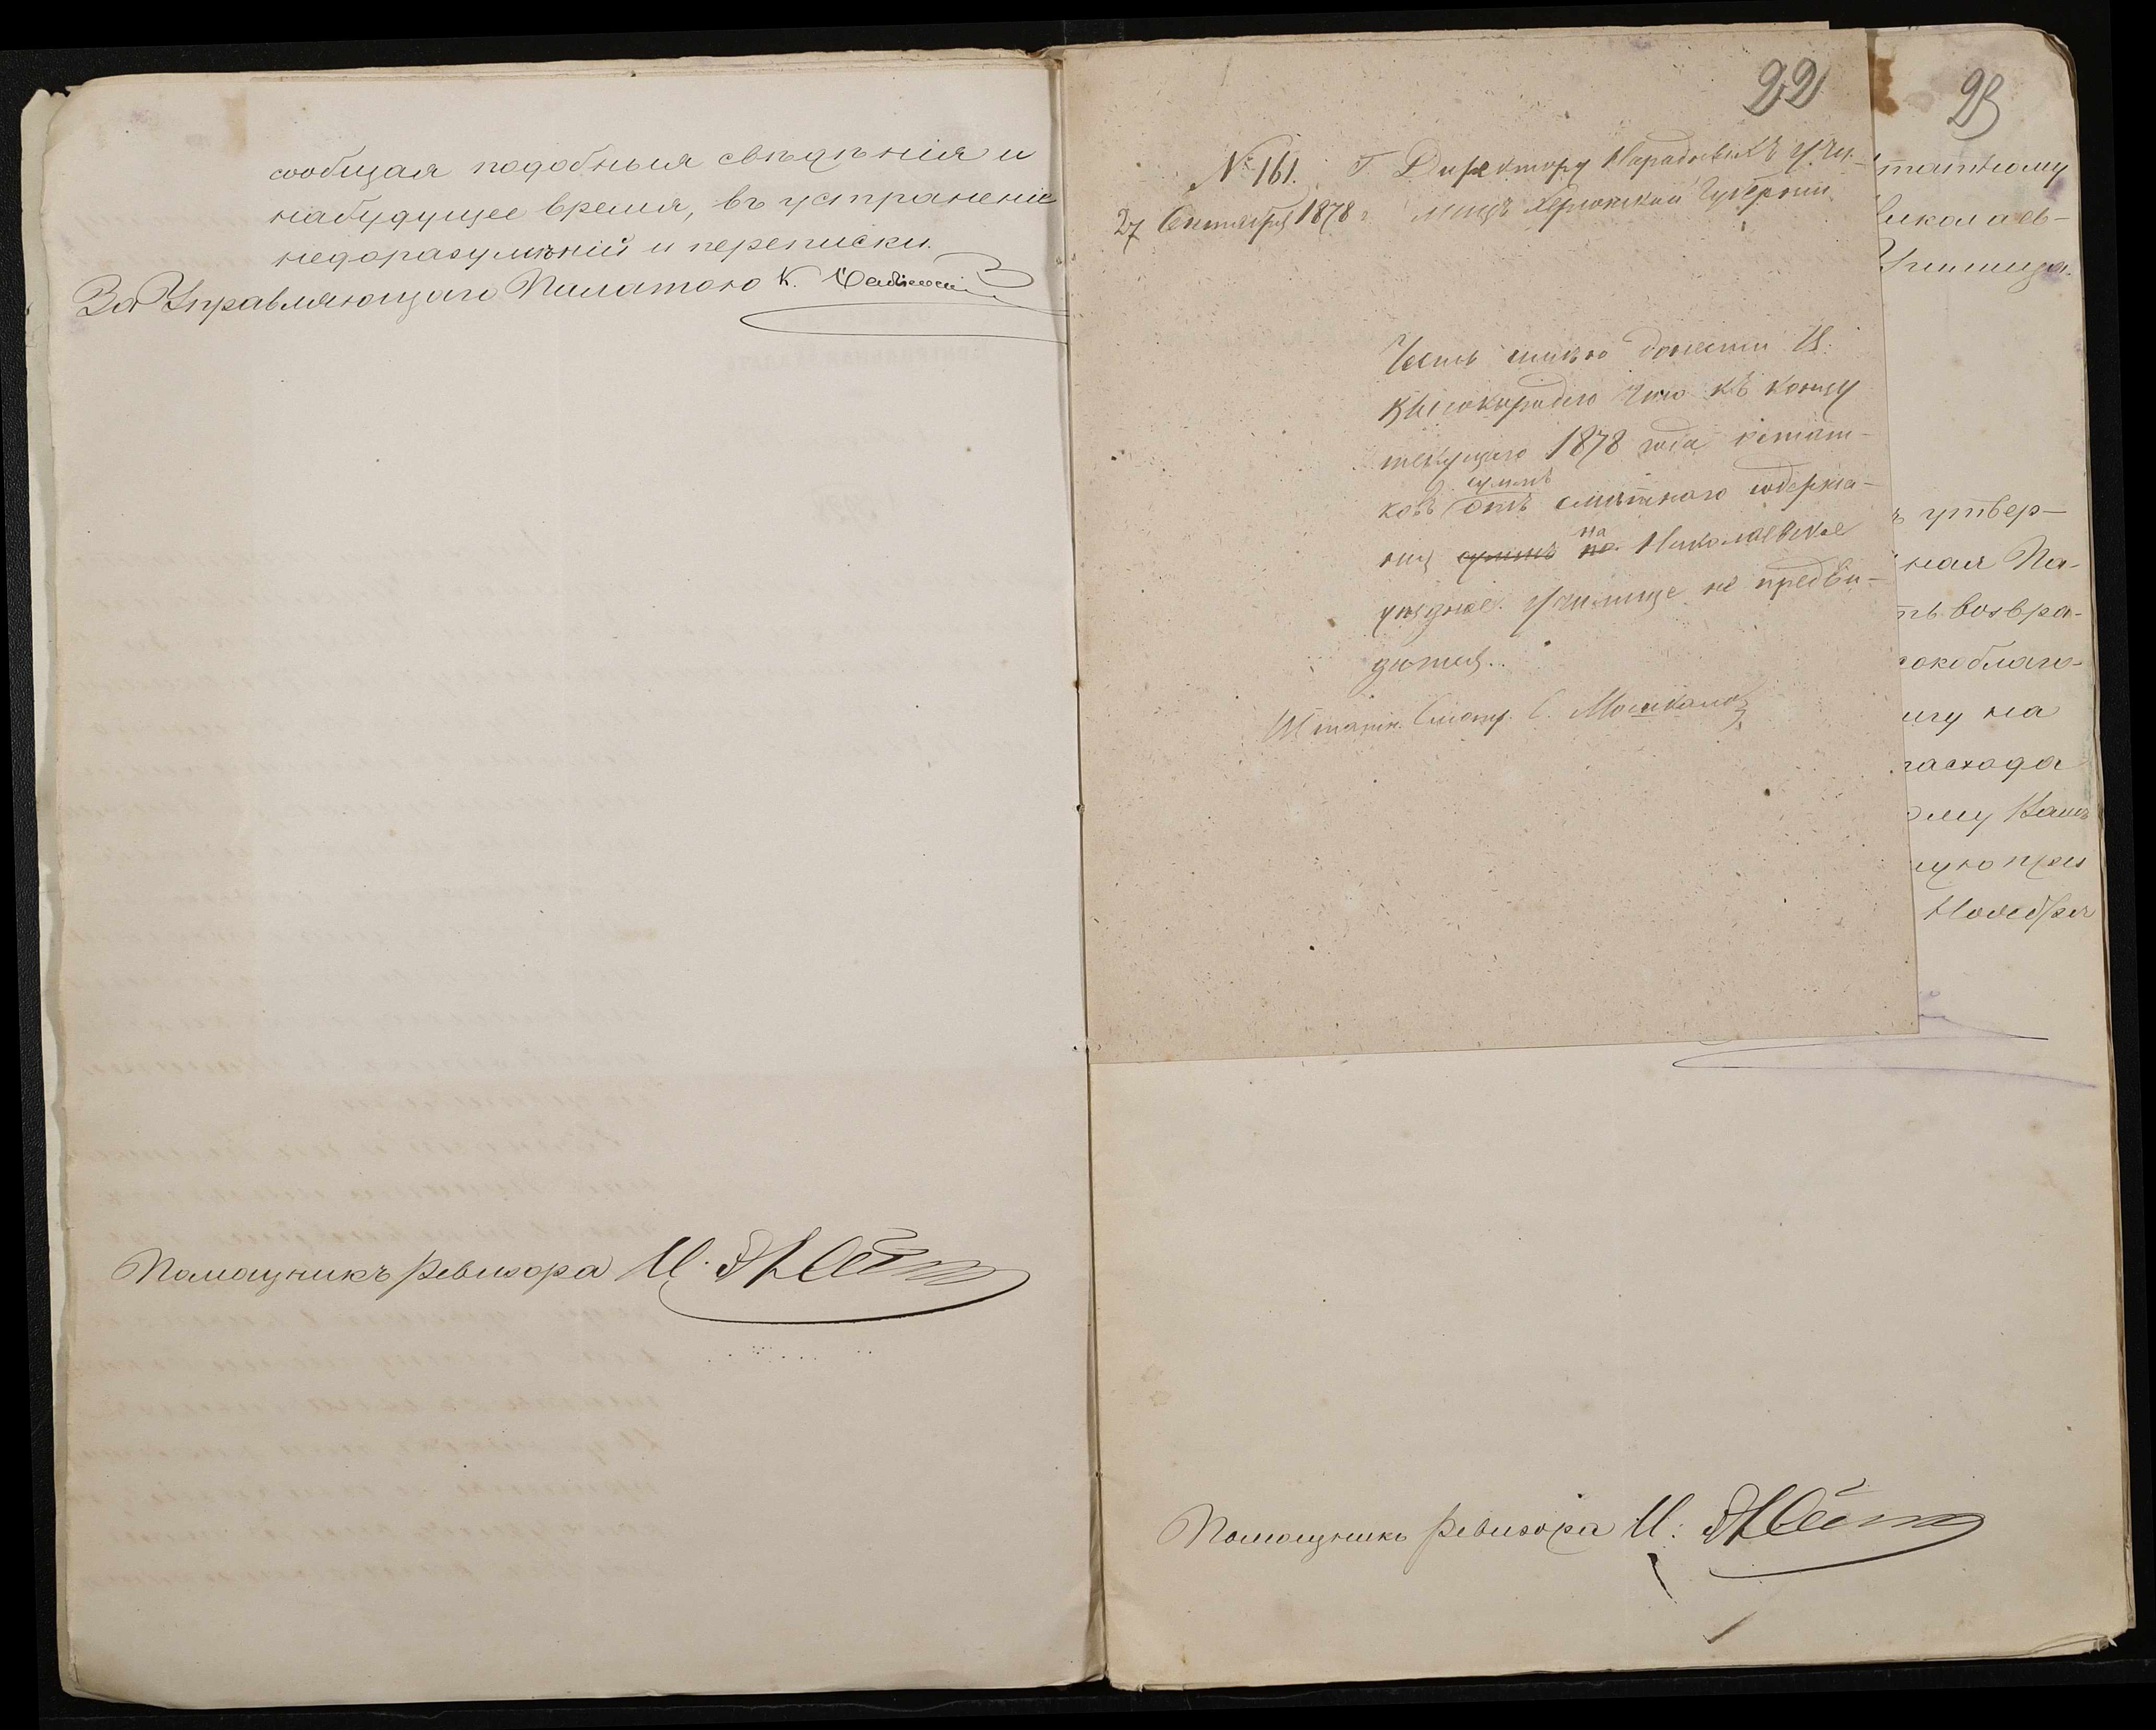 сообщая подобныя свѣдѣнія и
набудущее время, въ устраненіе
недоразумѣній и переписки.
За Управляющаго Палатою К.
Помощникъ Ревизора И.
22
№ 161. Г. Директору Народныхъ Учи-
27 Сентября 1878 г. лищъ Херсонской Губерніи.
Честь имѣю донести В.
Высокородію что къ концу
текущаго 1878 года остат-
ковъ суммъ отъ смѣтнаго содержа-
нія суммъ на Николаевское
уѣздное Училище не предви-
дится.
Штатн. Смотр. С.
23
татному
Николаев-
Училища.
утвер-
ная Па-
ть возвра-
сокоблаго-
игу на
расхода
ому Вамъ
ную при
Ноября
Помощникъ Ревизора И.